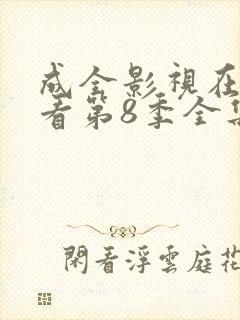 成全影視在
看第8季全集
閑看浮雲庭花